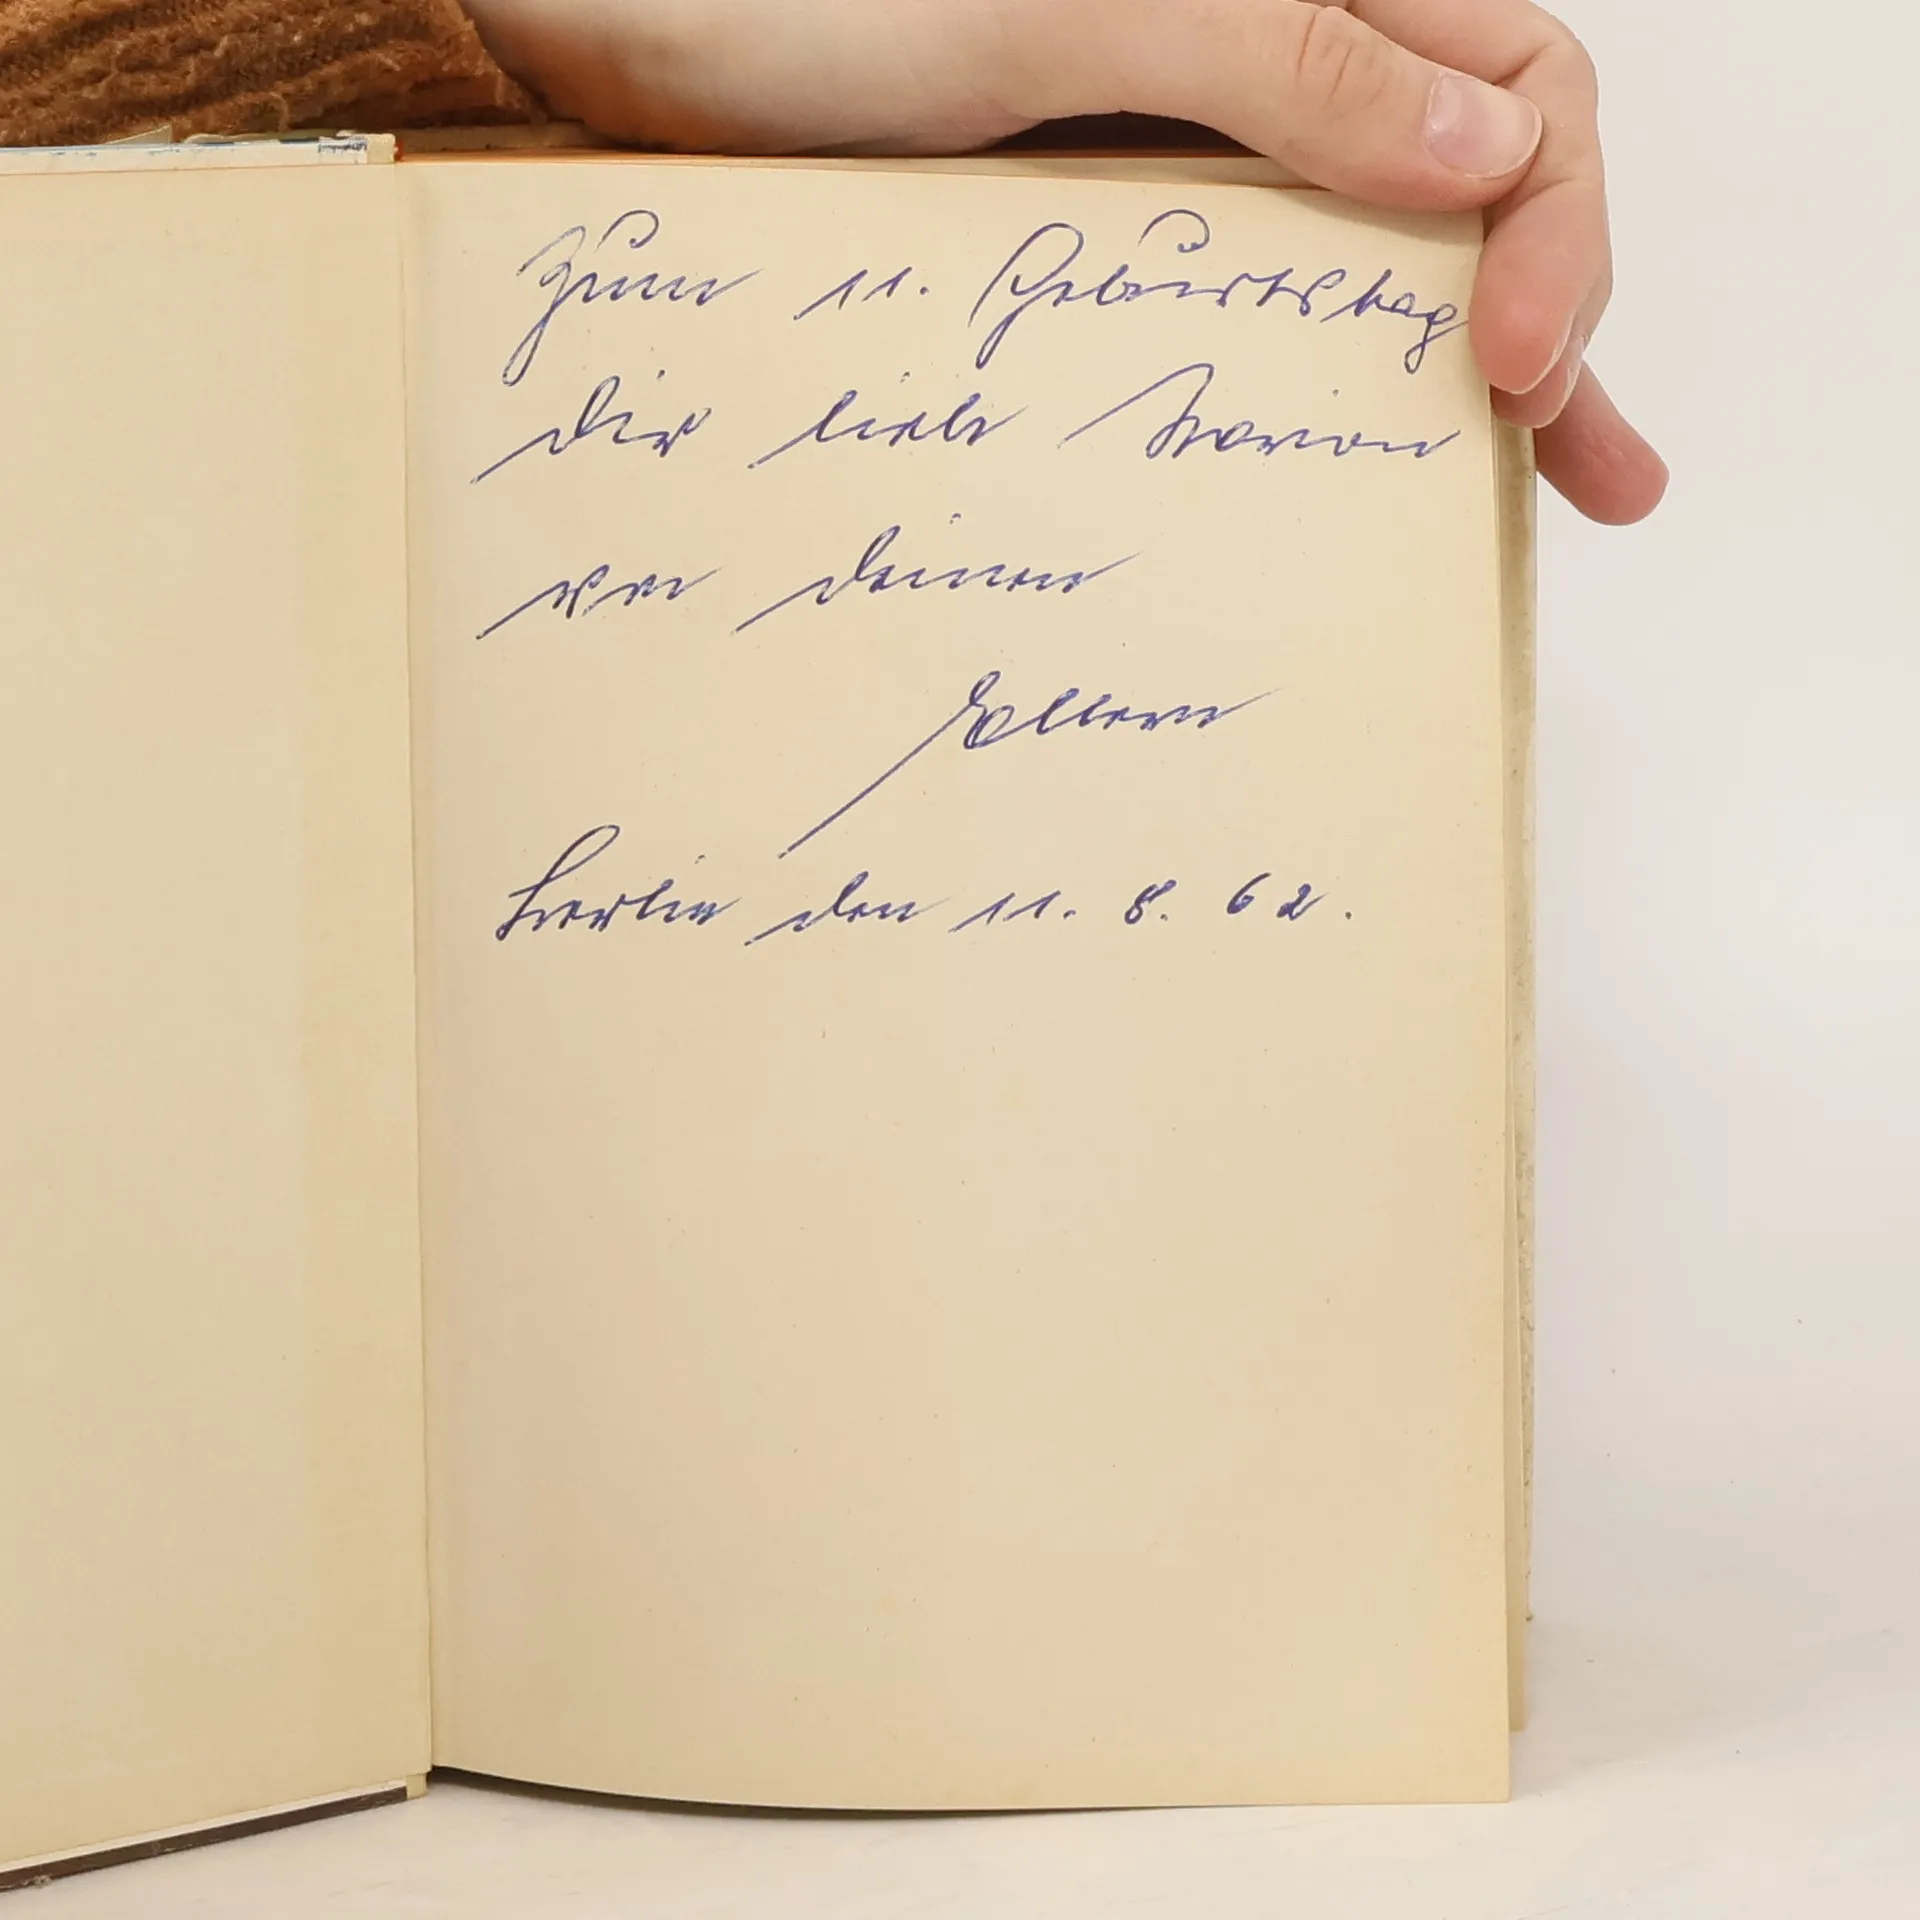 Zum 11. Geburtstag
Dir liebe Marion
von deinen
Eltern
Berlin den 11. 8. 62.